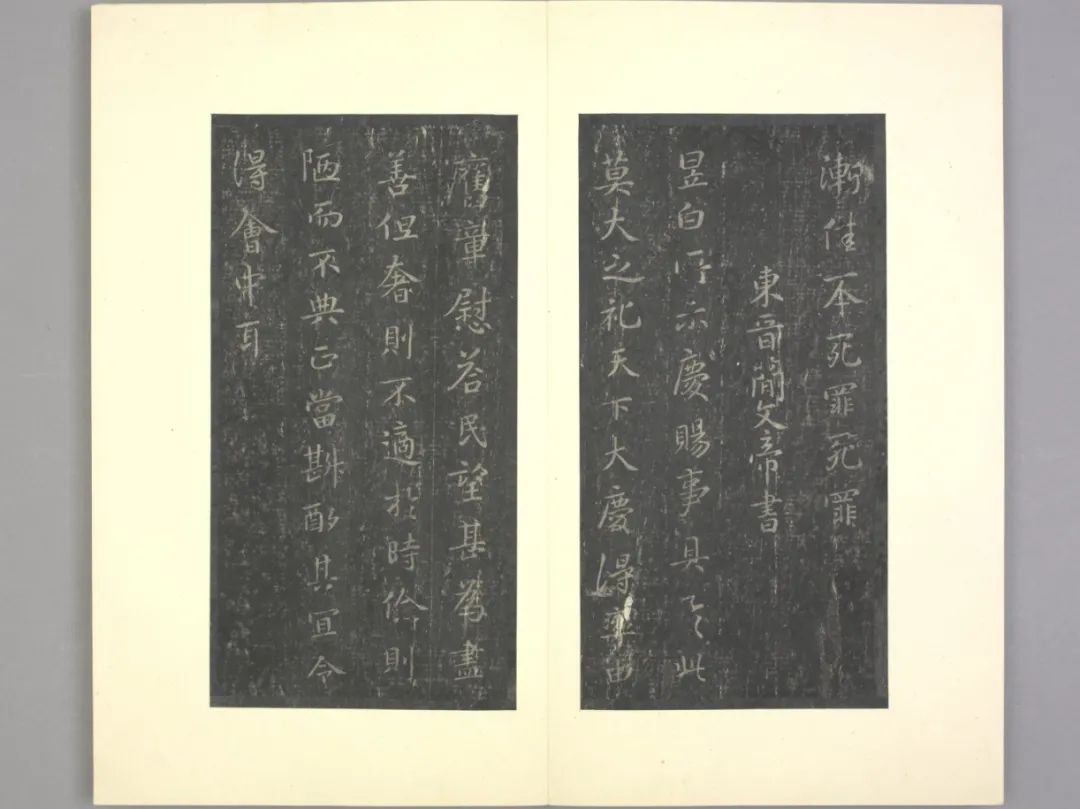 漸佳不死罪死罪
東晉簡文帝書
昱白所示慶賜事具之此
莫大之礼天下大慶得率由
舊章慰答民望甚爲盡
善但奢則不適於時儉則
陋而不典正當斟酌其宜令
得會中耳